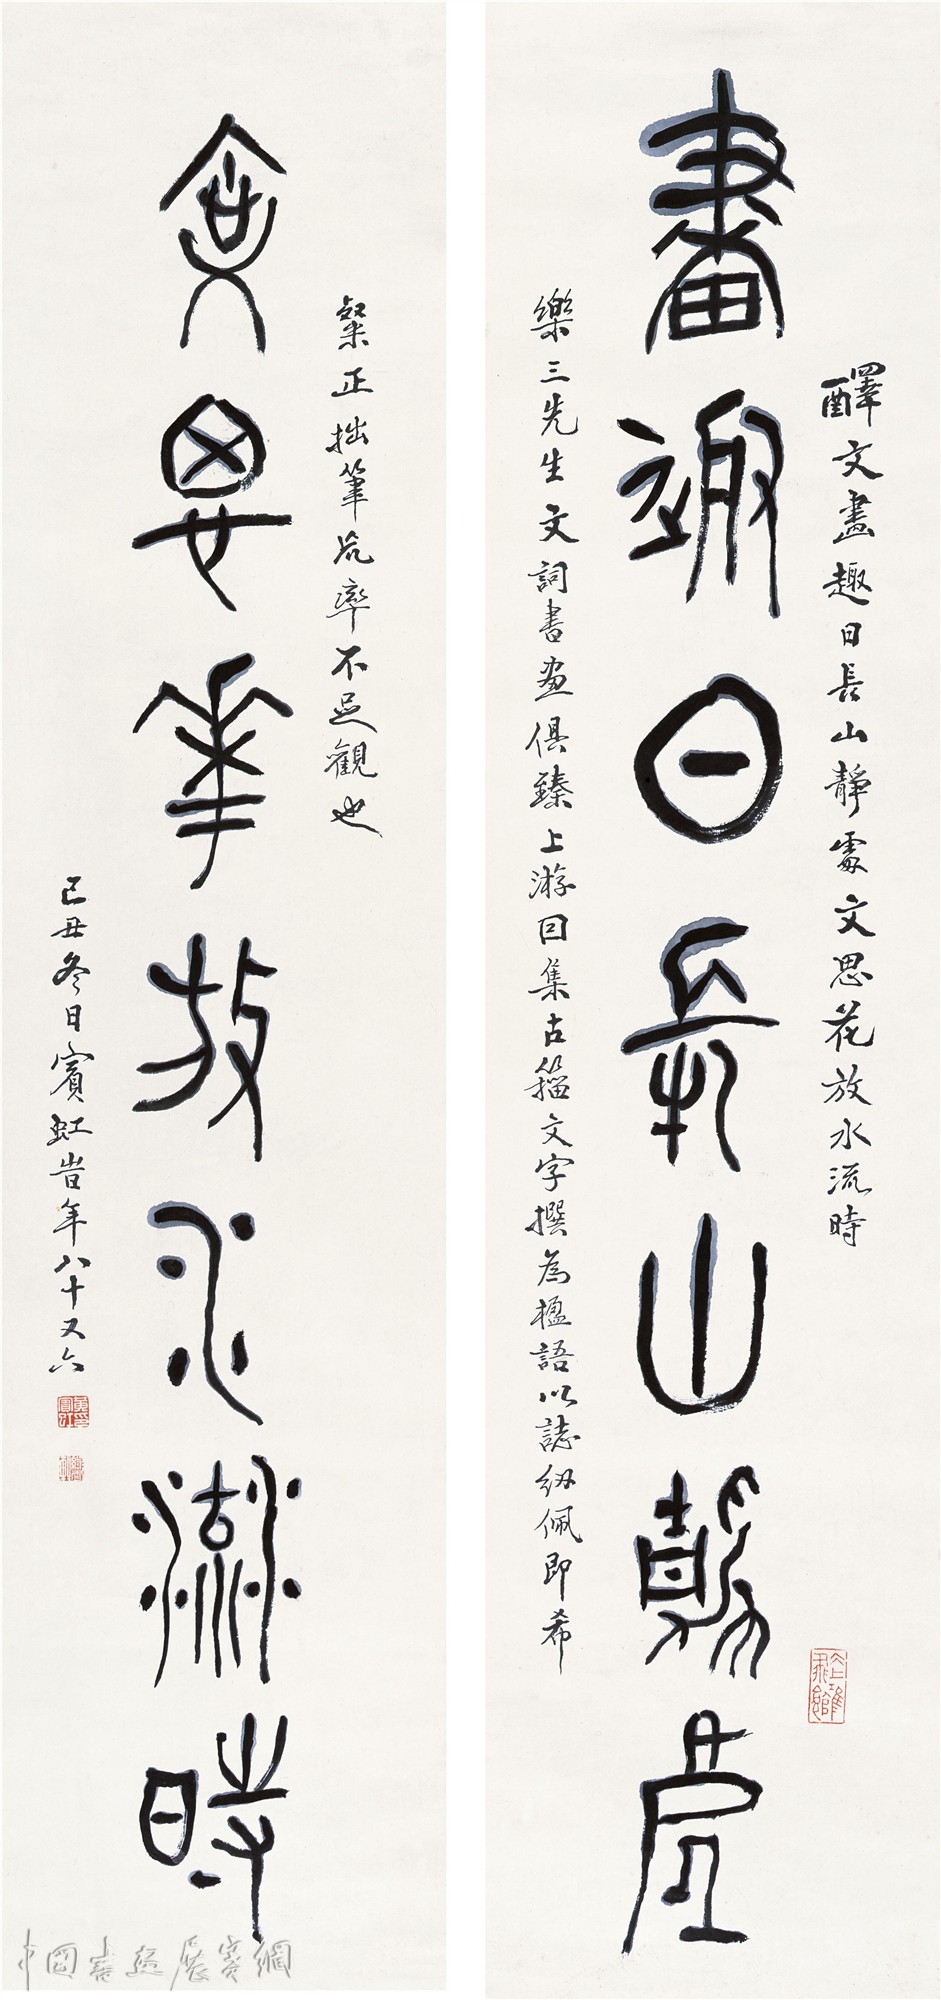 畫趣日長山靜處
醳文畫趣日長山靜處文思花放水流時
樂三先生文詞書畫俱臻上游因集古籀文字撰為楹語以誌紉佩即希
文思華放水流時
粲正拙筆荒率不足觀也
己丑冬日賓虹旹年八十又六
中國書畫展賽網